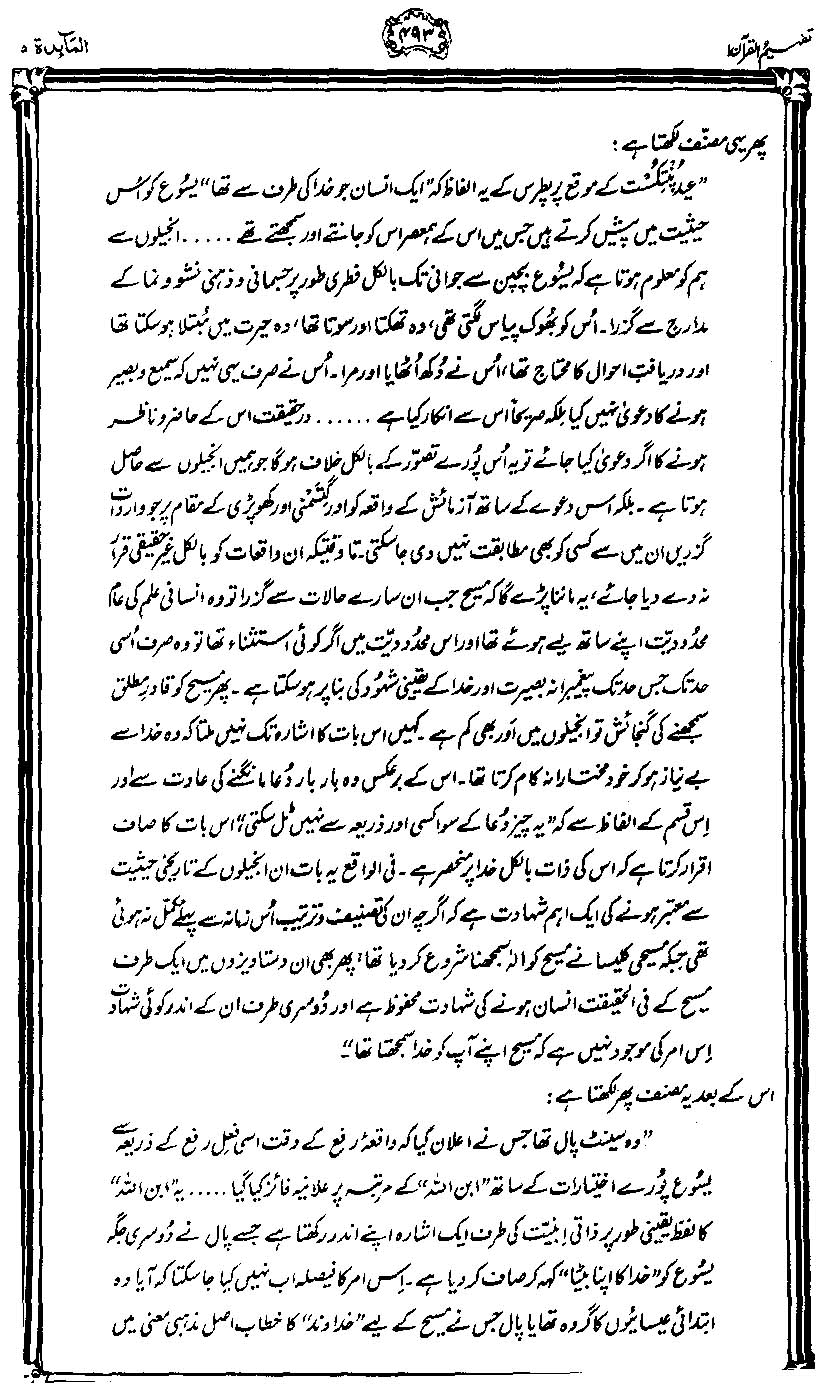 تفہیم القرآن ۱
۴۹۳
المآئدۃ ۵
پھر یہی مصنف لکھتا ہے :
”عیدِ پَنْتِکُسْت کے موقع پر پطرس کے یہ الفاظ کہ ”ایک انسان جو خدا کی طرف سے تھا“ یسُوع کو اُس
حیثیت میں پیش کرتے ہیں جس میں اس کے ہمعصر اس کو جانتے اور سمجھتے تھے ..... انجیلوں سے
ہم کو معلوم ہوتا ہے کہ یسُوع بچپن سے جوانی تک بالکل فطری طور پر جسمانی و ذہنی نشو و نما کے
مدارج سے گزرا۔ اُس کو بھُوک پیاس لگتی تھی، وہ تھکتا اور سوتا تھا، وہ حیرت میں مُبتلا ہو سکتا تھا
اور دریافتِ احوال کا محتاج تھا، اُس نے دُکھ اُٹھایا اور مرا۔ اُس نے صرف یہی نہیں کہ سمیع و بصیر
ہونے کا دعویٰ نہیں کیا بلکہ صریحاً اس سے انکار کیا ہے ...... درحقیقت اس کے حاضر و ناظر
ہونے کا اگر دعویٰ کیا جائے تو یہ اُس پُورے تصوّر کے بالکل خلاف ہوگا جو ہمیں انجیلوں سے حاصل
ہوتا ہے۔ بلکہ اس دعوے کے ساتھ آزمائش کے واقعہ کو اور گتسمنی اور کھوپڑی کے مقام پر جو واردات
گزریں ان میں سے کسی کو بھی مطابقت نہیں دی جا سکتی۔ تاوقتیکہ ان واقعات کو بالکل غیر حقیقی قرار
نہ دے دیا جائے، یہ ماننا پڑے گا کہ مسیح جب ان سارے حالات سے گزرا تو وہ انسانی علم کی عام
محدُودیّت اپنے ساتھ لیے ہوئے تھا اور اس محدُودیّت میں اگر کوئی استثناء تھا تو وہ صرف اُسی
حد تک جس حد تک پیغمبرانہ بصیرت اور خدا کے یقینی شہُود کی بنا پر ہو سکتا ہے۔ پھر مسیح کو قادرِ مطلق
سمجھنے کی گنجائش تو انجیلوں میں اَور بھی کم ہے۔ کہیں اس بات کا اشارہ تک نہیں ملتا کہ وہ خدا سے
بے نیاز ہو کر خود مختارانہ کام کرتا تھا۔ اس کے برعکس وہ بار بار دُعا مانگنے کی عادت سے اور
اِس قسم کے الفاظ سے کہ ”یہ چیز دُعا کے سوا کسی اور ذریعہ سے نہیں ٹل سکتی“، اس بات کا صاف
اقرار کرتا ہے کہ اس کی ذات بالکل خدا پر منحصر ہے۔ فی الواقع یہ بات ان انجیلوں کے تاریخی حیثیت
سے معتبر ہونے کی ایک اہم شہادت ہے کہ اگرچہ ان کی تصنیف و ترتیب اُس زمانہ سے پہلے مکمل نہ ہوئی
تھی جبکہ مسیحی کلیسا نے مسیح کو الٰہ سمجھنا شروع کر دیا تھا، پھر بھی ان دستاویزوں میں ایک طرف
مسیح کے فی الحقیقت انسان ہونے کی شہادت محفوظ ہے اور دُوسری طرف ان کے اندر کوئی شہادت
اِس امر کی موجود نہیں ہے کہ مسیح اپنے آپ کو خدا سمجھتا تھا“۔
اس کے بعد یہ مصنف پھر لکھتا ہے :
”وہ سینٹ پال تھا جس نے اعلان کیا کہ واقعۂ رفع کے وقت اسی فعلِ رفع کے ذریعہ سے
یسُوع پُورے اختیارات کے ساتھ ”ابن اللہ“ کے مرتبہ پر علانیہ فائز کیا گیا ..... یہ ”ابن اللہ“
کا لفظ یقینی طور پر ذاتی اِبنیّت کی طرف ایک اشارہ اپنے اندر رکھتا ہے جسے پال نے دُوسری جگہ
یسُوع کو ”خدا کا اپنا بیٹا“ کہہ کر صاف کر دیا ہے۔ اِس امر کا فیصلہ اب نہیں کیا جا سکتا کہ آیا وہ
ابتدائی عیسائیوں کا گروہ تھا یا پال جس نے مسیح کے لیے ”خداوند“ کا خطاب اصل مذہبی معنی میں